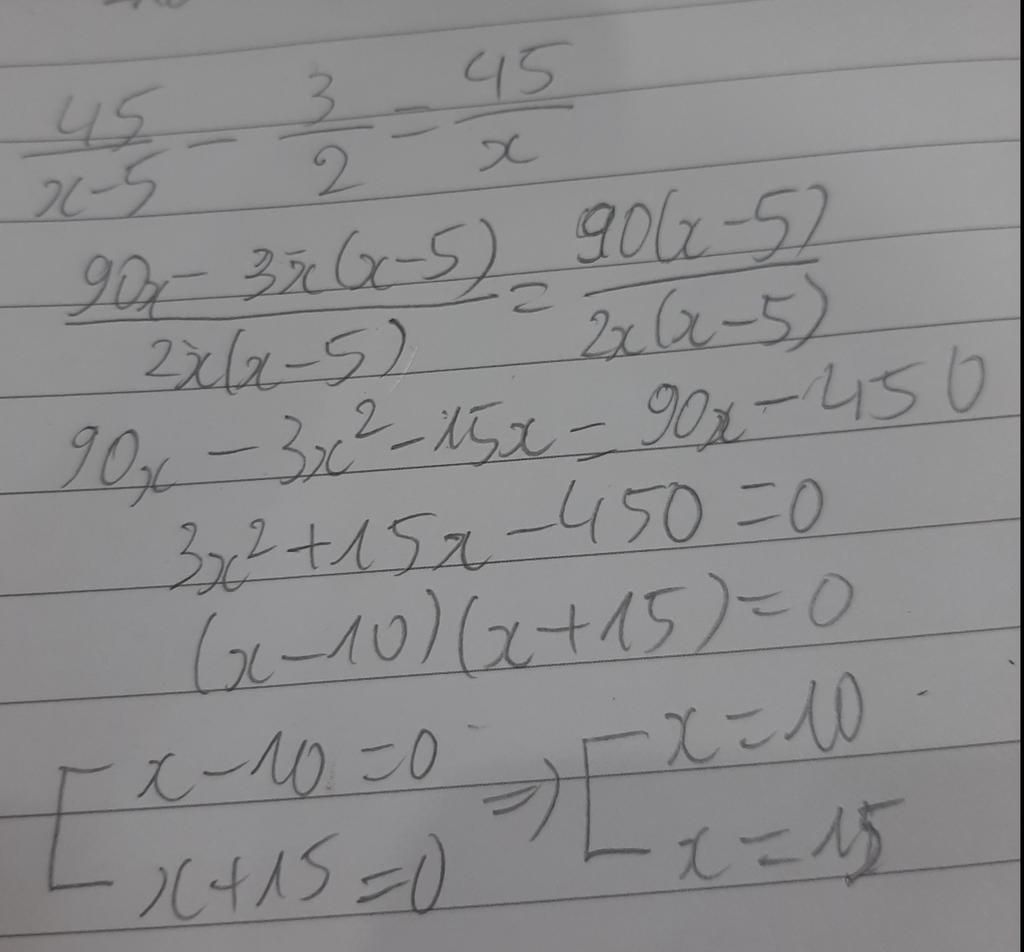 45/(x-5) - 3/2 = 45/x
(90x - 3x(x-5))/(2x(x-5)) = (90(x-5))/(2x(x-5))
90x - 3x² - 15x = 90x - 450
3x² + 15x - 450 = 0
(x - 10)(x + 15) = 0
[ x - 10 = 0 => [ x = 10
x + 15 = 0 x = 15